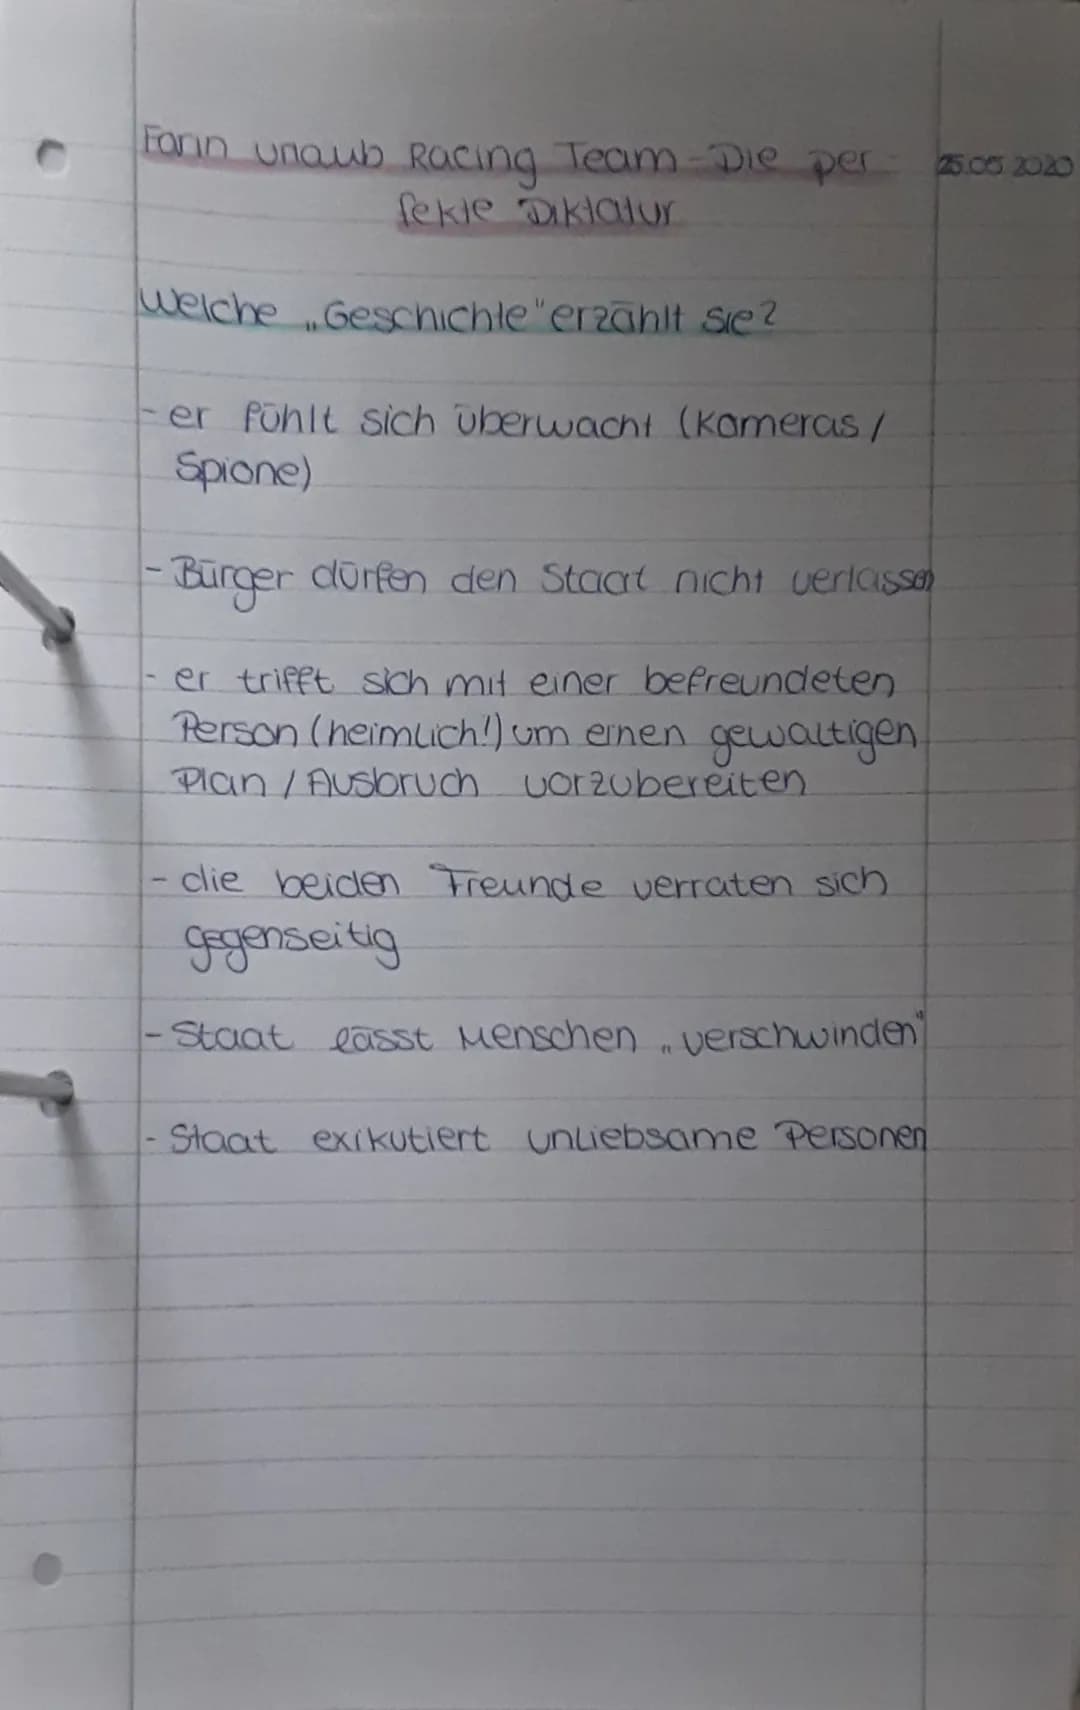 Farin Urlaub Racing Team - Die per- 25.05.2020
fekte Diktatur
Welche „Geschichte" erzählt sie?
- er fühlt sich überwacht (Kameras /
Spione)
- Bürger dürfen den Staat nicht verlassen
- er trifft sich mit einer befreundeten
Person (heimlich!) um einen gewaltigen
Plan / Ausbruch vorzubereiten
- die beiden Freunde verraten sich
gegenseitig
- Staat lässt Menschen „verschwinden"
- Staat exikutiert unliebsame Personen